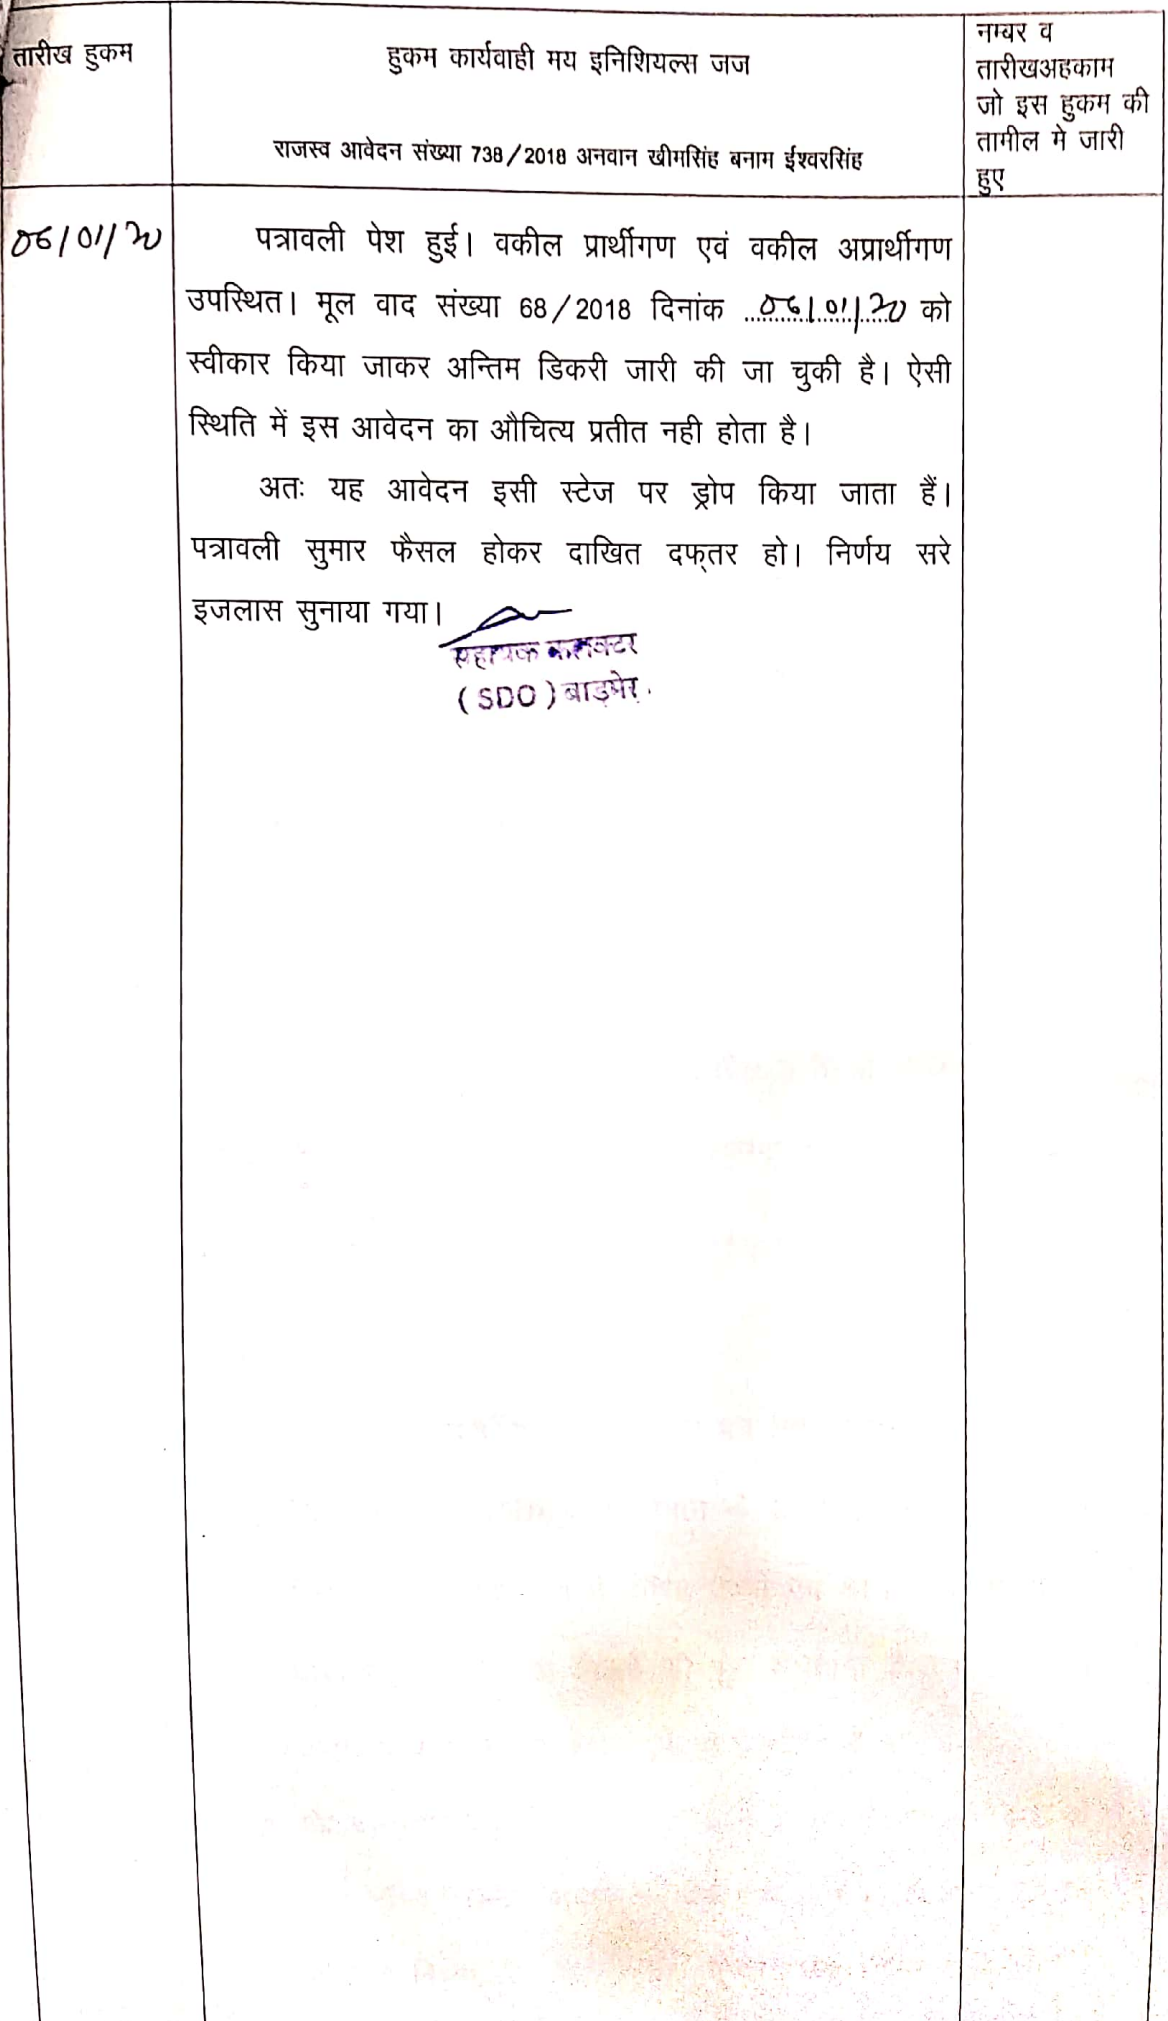 तारीख हुकम
हुकम कार्यवाही मय इनिशियल्स जज
राजस्व आवेदन संख्या 738/2018 अनवान खीमसिंह बनाम ईश्वरसिंह
नम्बर व
तारीखअहकाम
जो इस हुकम की
तामील मे जारी
हुए
06/01/20
पत्रावली पेश हुई। वकील प्रार्थीगण एवं वकील अप्रार्थीगण
उपस्थित। मूल वाद संख्या 68/2018 दिनांक ...06/01/20 को
स्वीकार किया जाकर अन्तिम डिकरी जारी की जा चुकी है। ऐसी
स्थिति में इस आवेदन का औचित्य प्रतीत नही होता है।
अतः यह आवेदन इसी स्टेज पर ड्रोप किया जाता हैं।
पत्रावली सुमार फैसल होकर दाखित दफ्तर हो। निर्णय सरे
इजलास सुनाया गया।
सहायक कलक्टर
(SDO) बाड़मेर.